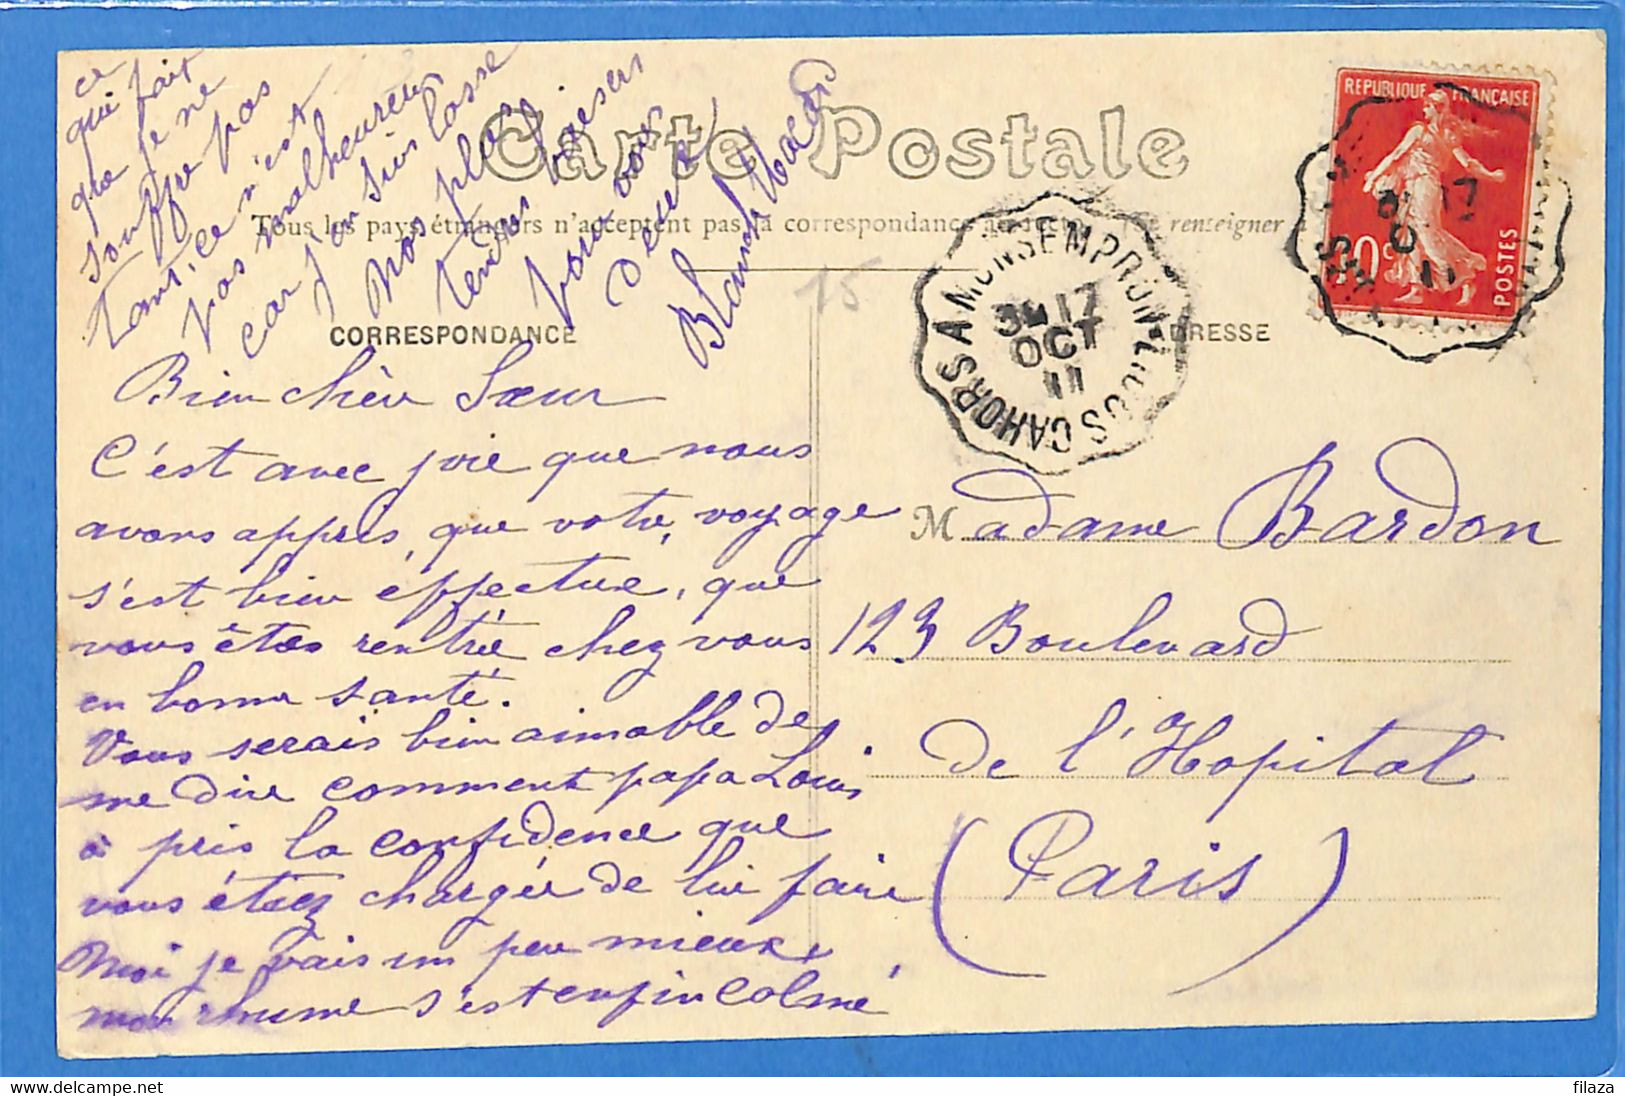 Carte Postale
Tous les pays étrangers n'acceptent pas la correspondance au recto (Se renseigner à
CORRESPONDANCE
ADRESSE
REPUBLIQUE FRANÇAISE
10c
POSTES
CAHORS A MONSEMPRON-LIBOS
3E 17
OCT
11
17
OC
11
15
Bien chère Sœur
C'est avec joie que nous
avons appris, que votre, voyage
s'est bien éffectué, que
vous êtes rentrée chez vous
en bonne santé.
Vous serais bien aimable de
me dire comment papa Louis
à pris la confidence que
vous étiez chargée de lui faire
Moi je vais un peu mieux,
mon rhume s'est enfin calmé
ce
qui fait
que je ne
souffre pas
tant, ce n'est
pas malheureux
car j'en suis lasse
Nos plus
tendres baisers
pour vous
deux
Blanche
Madame Bardon
123 Boulevard
de l'Hopital
(Paris)
filaza